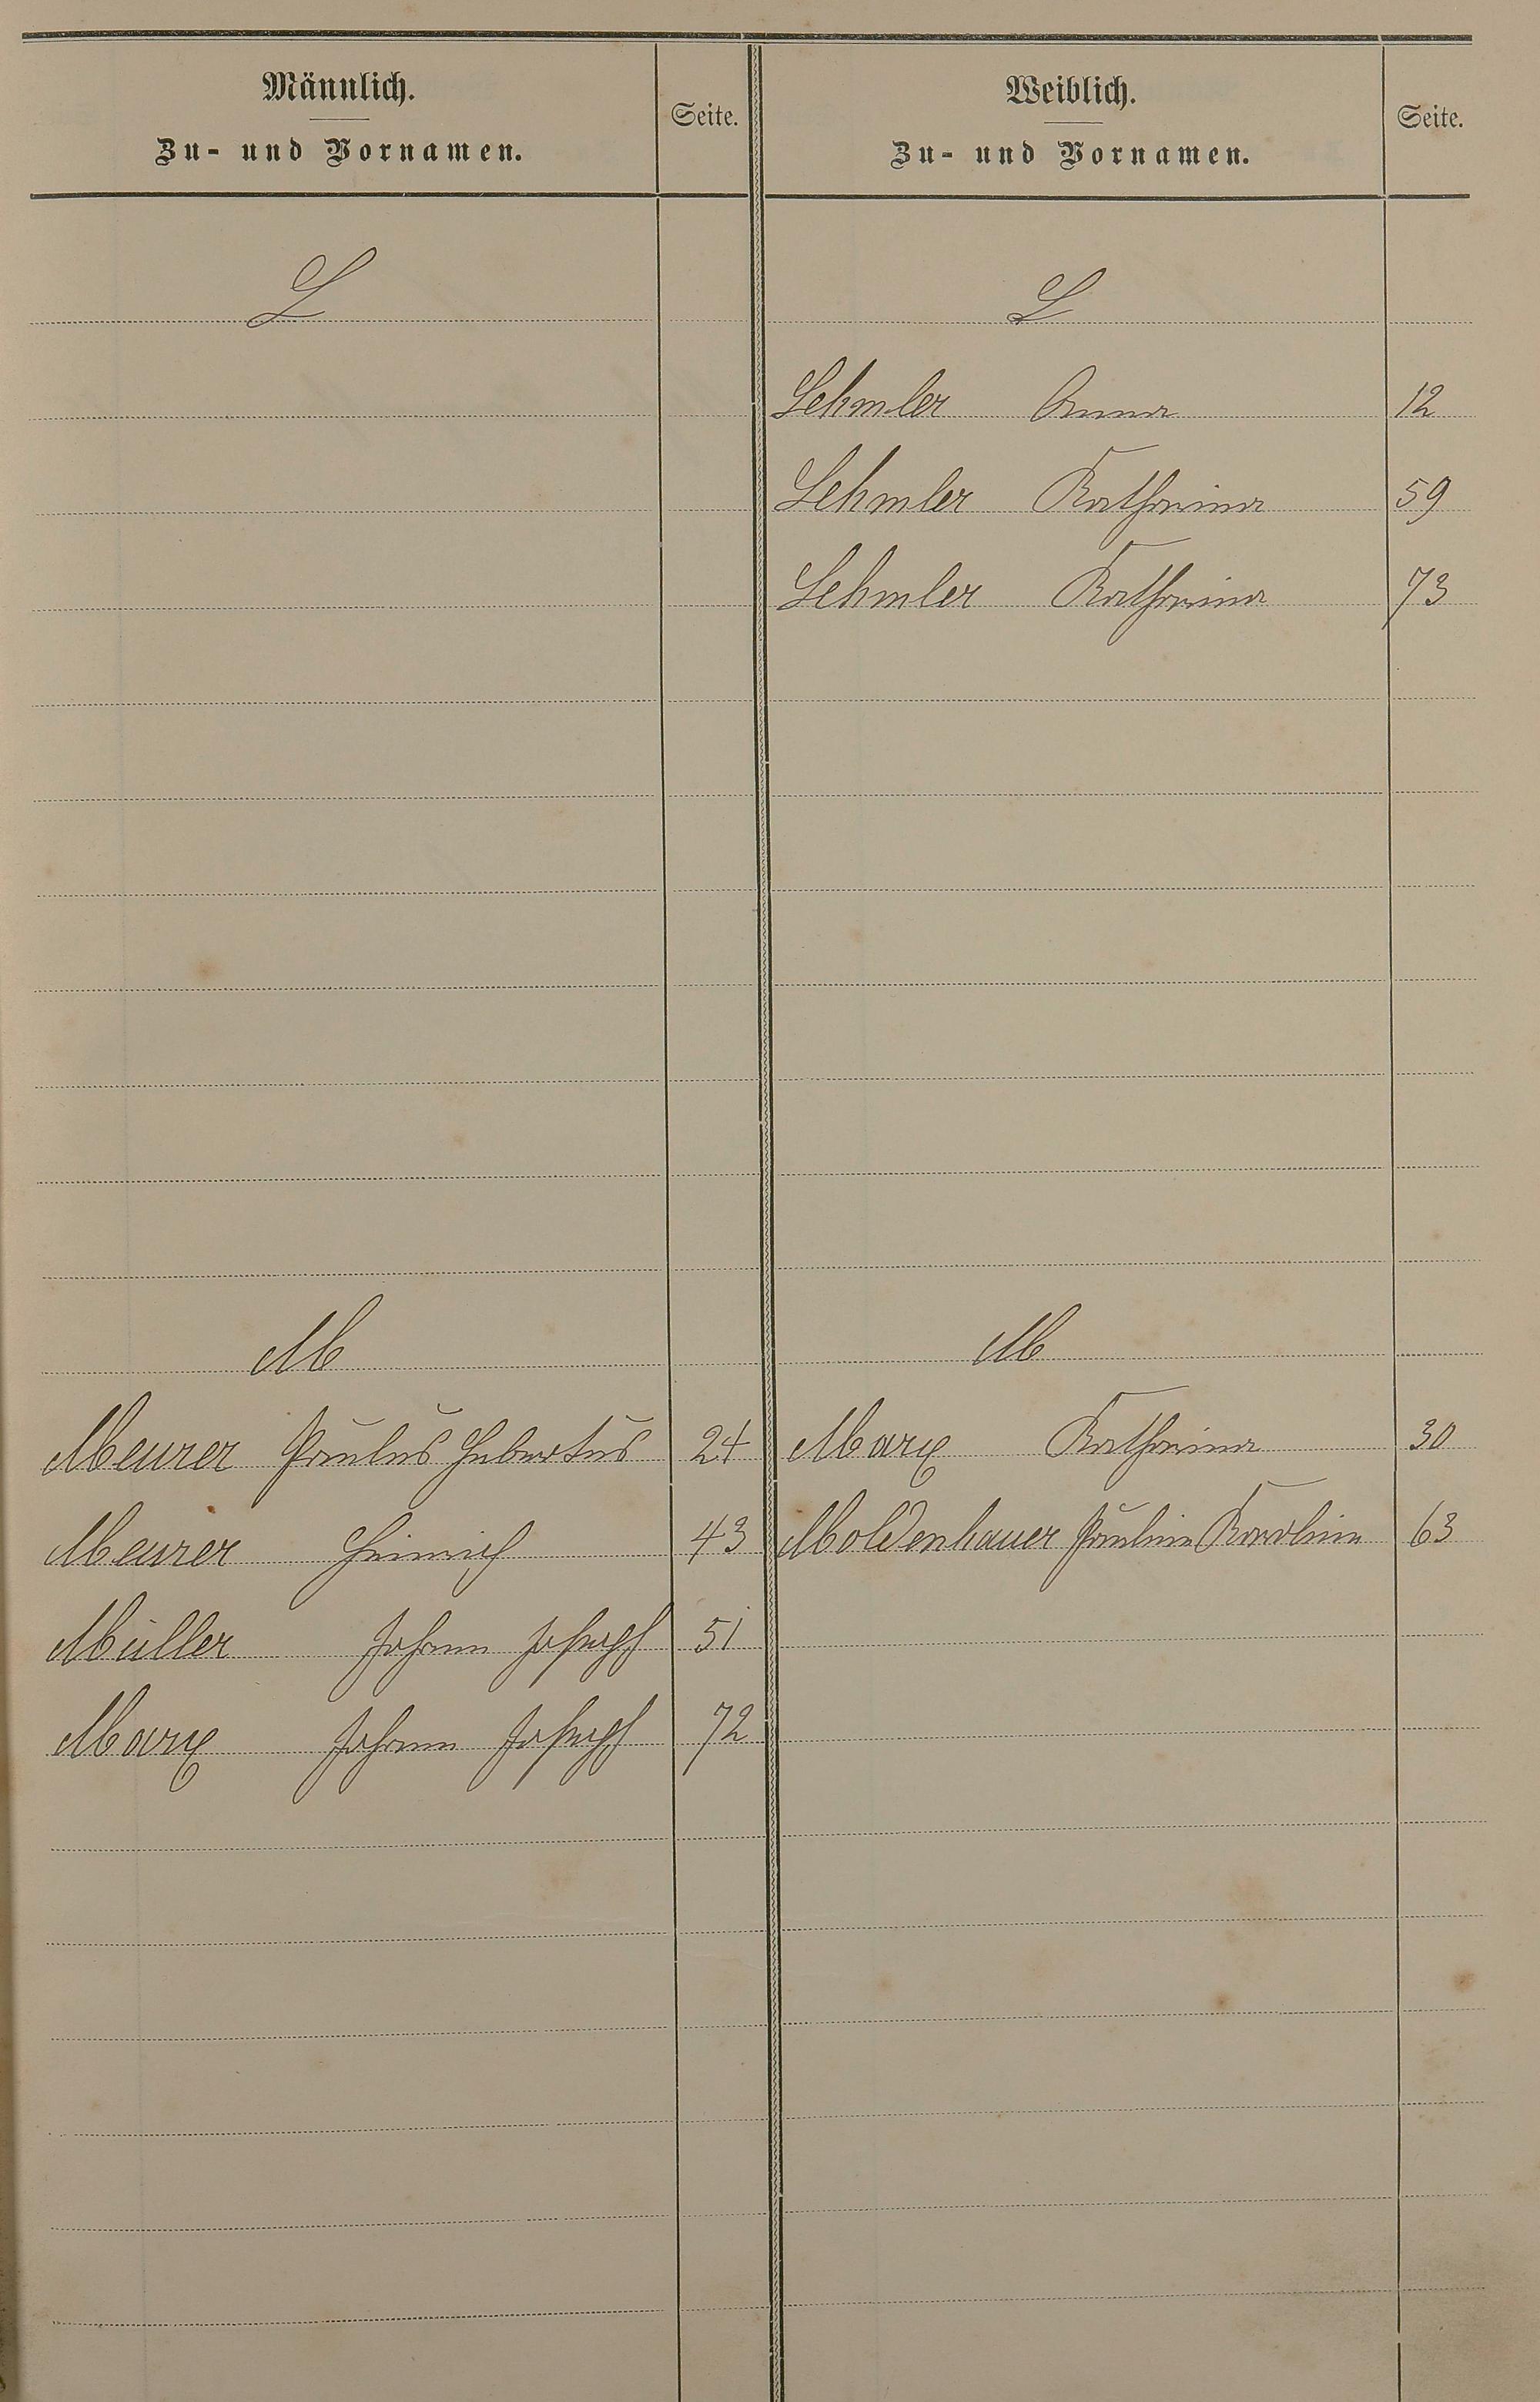 Männlich.
Zu- und Vornamen.
Seite.
Weiblich.
Zu- und Vornamen.
Seite.
L
L
Lehmler Anna 12
Lehmler Katharina 59
Lehmler Katharina 73
M
M
Meurer Paulus Hubertus 24
Marx Katharina 30
Meurer Heinrich 43
Moldenhauer Pauline Karoline 63
Müller Johann Joseph 51
Marx Johann Joseph 72